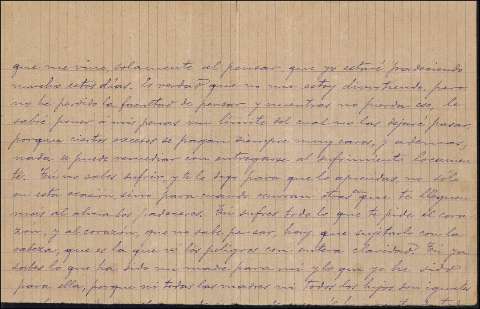 que me vino, solamente el pensar que yo estaré padeciendo
mucho estos días. Es verdad que no me estoy divirtiendo, pero
no he perdido la facultad de pensar y mientras no pierda eso, le
sabré poner á mis penas un límite del cual no las dejaré pasar,
porque ciertos excesos se pagan siempre muy caros, y ademas,
nada se puede remediar con entregarse al sufrimiento locamen-
te. Tú no sabes sufrir, y te lo digo para que lo aprendas, no sólo
en esta ocasión sino para cuando ocurran otras que te lleguen
mas al alma los padeceres. Tú sufres todo lo que te pide el cora-
zon, y al corazón, que no sabe pensar, hay que sujetarlo con la
cabeza, que es la que ve los peligros con entera claridad. Tú ya
sabes lo que ha sido mi madre para mi y lo que yo he sido
para ella, porque ni todas las madres ni todos los hijos son iguales